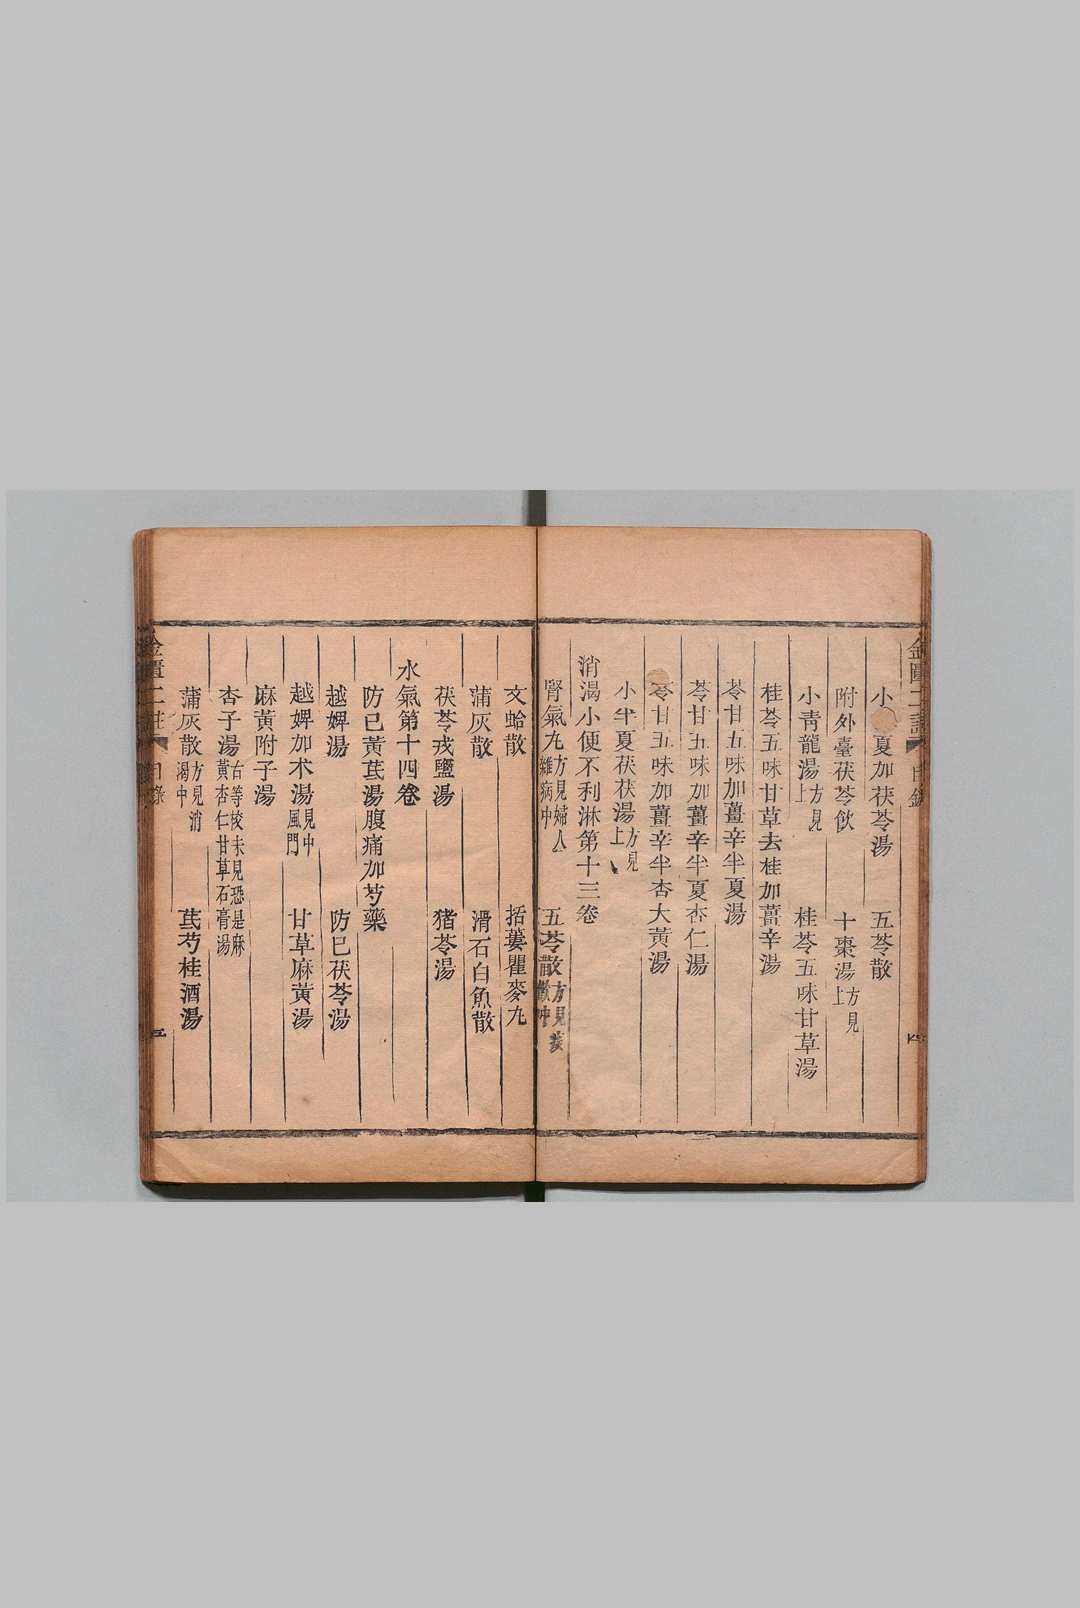 小夏加茯苓湯　五苓散
附外臺茯苓飲　十棗湯方見上
小青龍湯方見上　桂苓五味甘草湯
桂苓五味甘草去桂加薑辛湯
苓甘五味加薑辛半夏湯
苓甘五味加薑辛半夏杏仁湯
苓甘五味加薑辛半杏大黃湯
小半夏茯茯湯方見上
消渴小便不利淋第十三卷
腎氣九方見婦人雜病中　五苓散方見痰飲中
文蛤散　括蔞瞿麥九
蒲灰散　滑石白魚散
茯苓戎鹽湯　猪苓湯
水氣第十四卷
防已黃茋湯腹痛加芍藥
越婢湯　防巳茯苓湯
越婢加术湯見中風門　甘草麻黃湯
麻黃附子湯
杏子湯右等校未見恐是麻黃杏仁甘草石膏湯
蒲灰散方見消渴中　茋芍桂酒湯
金匱二註　目錄　五